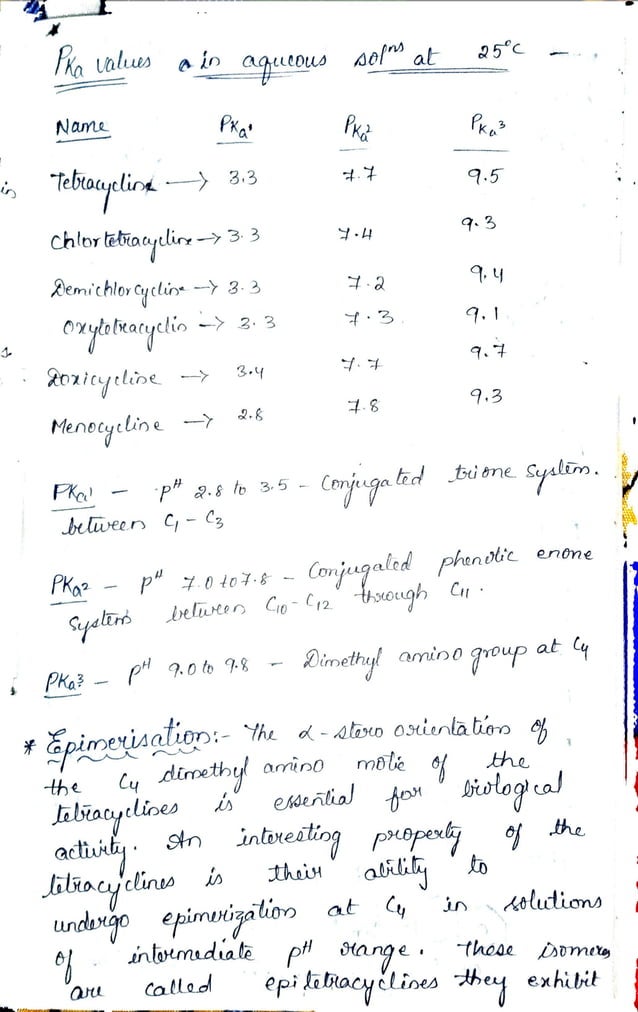 PKa values in aqueous solns at 25°C -
Name PKa1 PKa2 PKa3
Tetracycline → 3.3 7.7 9.5
Chlortetracycline → 3.3 7.4 9.3
Demichlorcycline → 3.3 7.2 9.4
Oxytetracyclin → 3.3 7.3 9.1
Doxicycline → 3.4 7.7 9.7
Menocycline → 2.8 7.8 9.3
PKa1 - pH 2.8 to 3.5 - Conjugated trione system.
between C1 - C3
PKa2 - pH 7.0 to 7.8 - Conjugated phenolic enone
System between C10 - C12 through C11.
PKa3 - pH 9.0 to 9.8 - Dimethyl amino group at C4
* Epimerisation:- The α-stero orientation of
the C4 dimethyl amino motie of the
tetracyclines is essential for biological
activity. An interesting property of the
tetracyclines is their ability to
undergo epimerization at C4 in solutions
of intermediate pH range. These isomers
are called epitetracyclines they exhibit